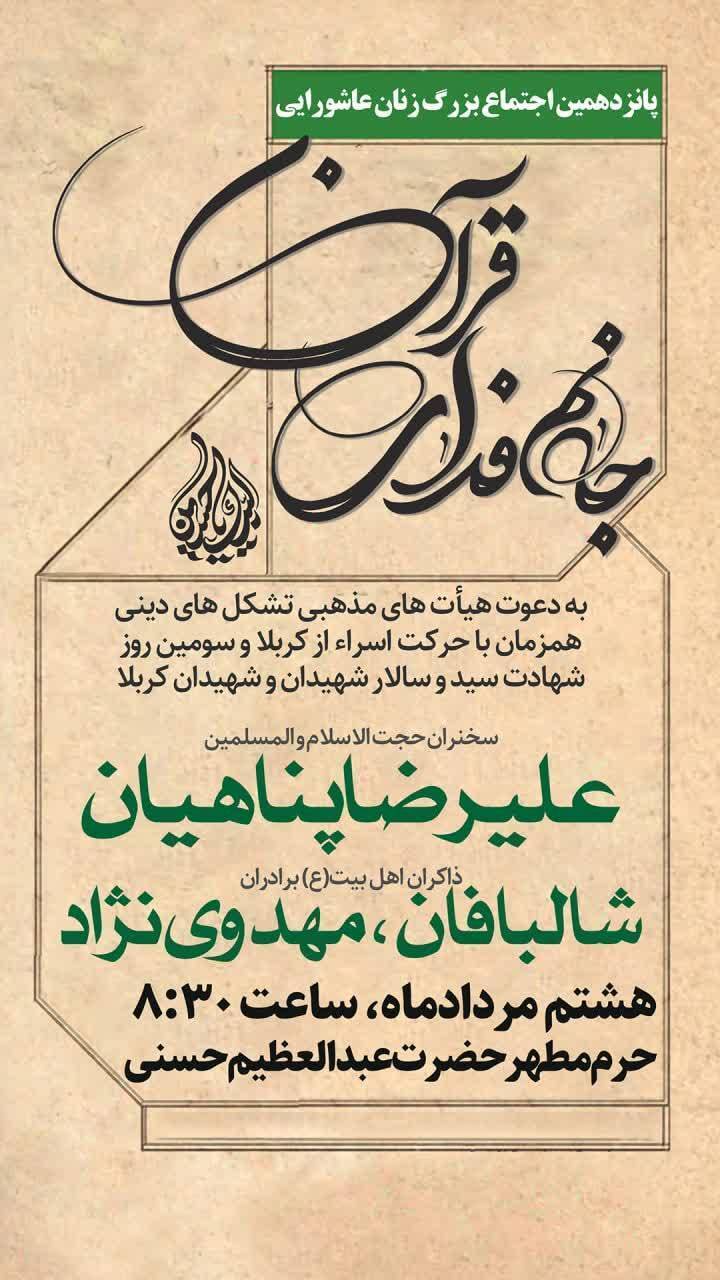 پانزدهمین اجتماع بزرگ زنان عاشورایی
جانم فدای قرآن
به دعوت هیأت های مذهبی تشکل های دینی
همزمان با حرکت اسراء از کربلا و سومین روز
شهادت سید و سالار شهیدان و شهیدان کربلا
سخنران حجت الاسلام والمسلمین
علیرضا پناهیان
ذاکران اهل بیت(ع) برادران
شالبافان، مهدوی نژاد
هشتم مردادماه، ساعت ۸:۳۰
حرم مطهر حضرت عبدالعظیم حسنی